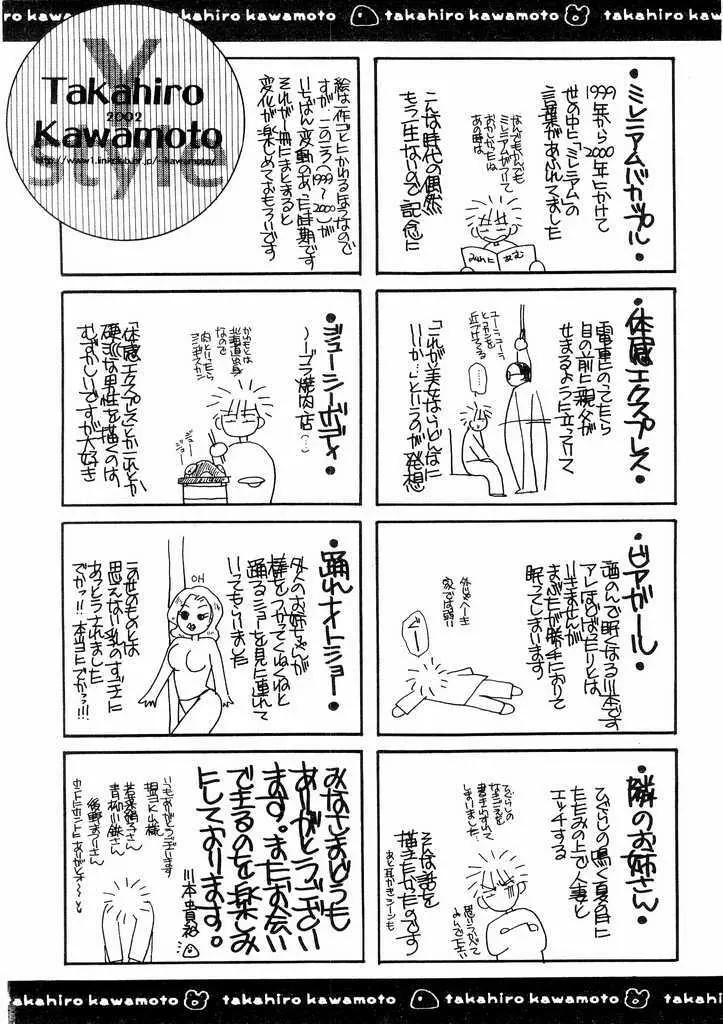 takahiro kawamoto takahiro kawamoto takahiro kawamoto
Y
style
Takahiro
2002
Kawamoto
・ミレニアムバカップル・
1999年から2000年にかけて
世の中に「ミレニアム」の
言葉があふれてました
こんな時代の偶然
もう一生ないので記念に
なんでもかんでも
ミレニアムがついて
おかしかったね
あの時は
みれに
あむ
絵は一作ごとにかわるほうなので
すが、このころ(1999〜2000)が
いちばん変動のあった時期です
それが一冊にまとまると
変化が楽しめておもろいです
・体感エクスプレス・
電車にのってたら
目の前に親父が
せまるように立ってて
「これが美女ならどんなに
いいか…」というのが発想
ユーラユーラ
と
近づけてくる
・ジューシーボディ・
〜ノーブラ焼肉店〜
かわもとは
北海道出身
なので
肉といったら
ジンギスカン
ジュー
ジュー
「体感エクスプレス」とかこれとか
硬派な男性を描くのは
むずかしいですが大好き
・ビアガール・
酒のんで眠くなる川本です
アレはのばったりとは
いきませんが
まぶたが勝手におりて
眠ってしまいます
外じゃヘーキ
家では弱い
ぐー
・踊れナイトショー・
外人のお姉ちゃんが
棒をつかってくねくねと
踊るショーを見に連れて
いってもらいました
OH
この世のものとは
思えない乳のすごさに
あっとうされました
でかっ!!本当にでかっ!!!
・隣のお姉さん・
ひぐらしの鳴く夏の日に
たたみの上で人妻と
エッチする
そんな話を
描きたかったのです
あと耳かきシーンも
ひぐらしの
なきごえを
書きわすれて
しまいました
思いうかべて
よんで下さい
みなさまどうも
ありがとうござい
ます。またお会い
できるのを楽しみ
にしております。
川本貴裕
いつもありがとうございます
青柳川鉄さん
後野まつりさん
ホントにホントに ありがとネ〜
takahiro kawamoto takahiro kawamoto takahiro kawamoto